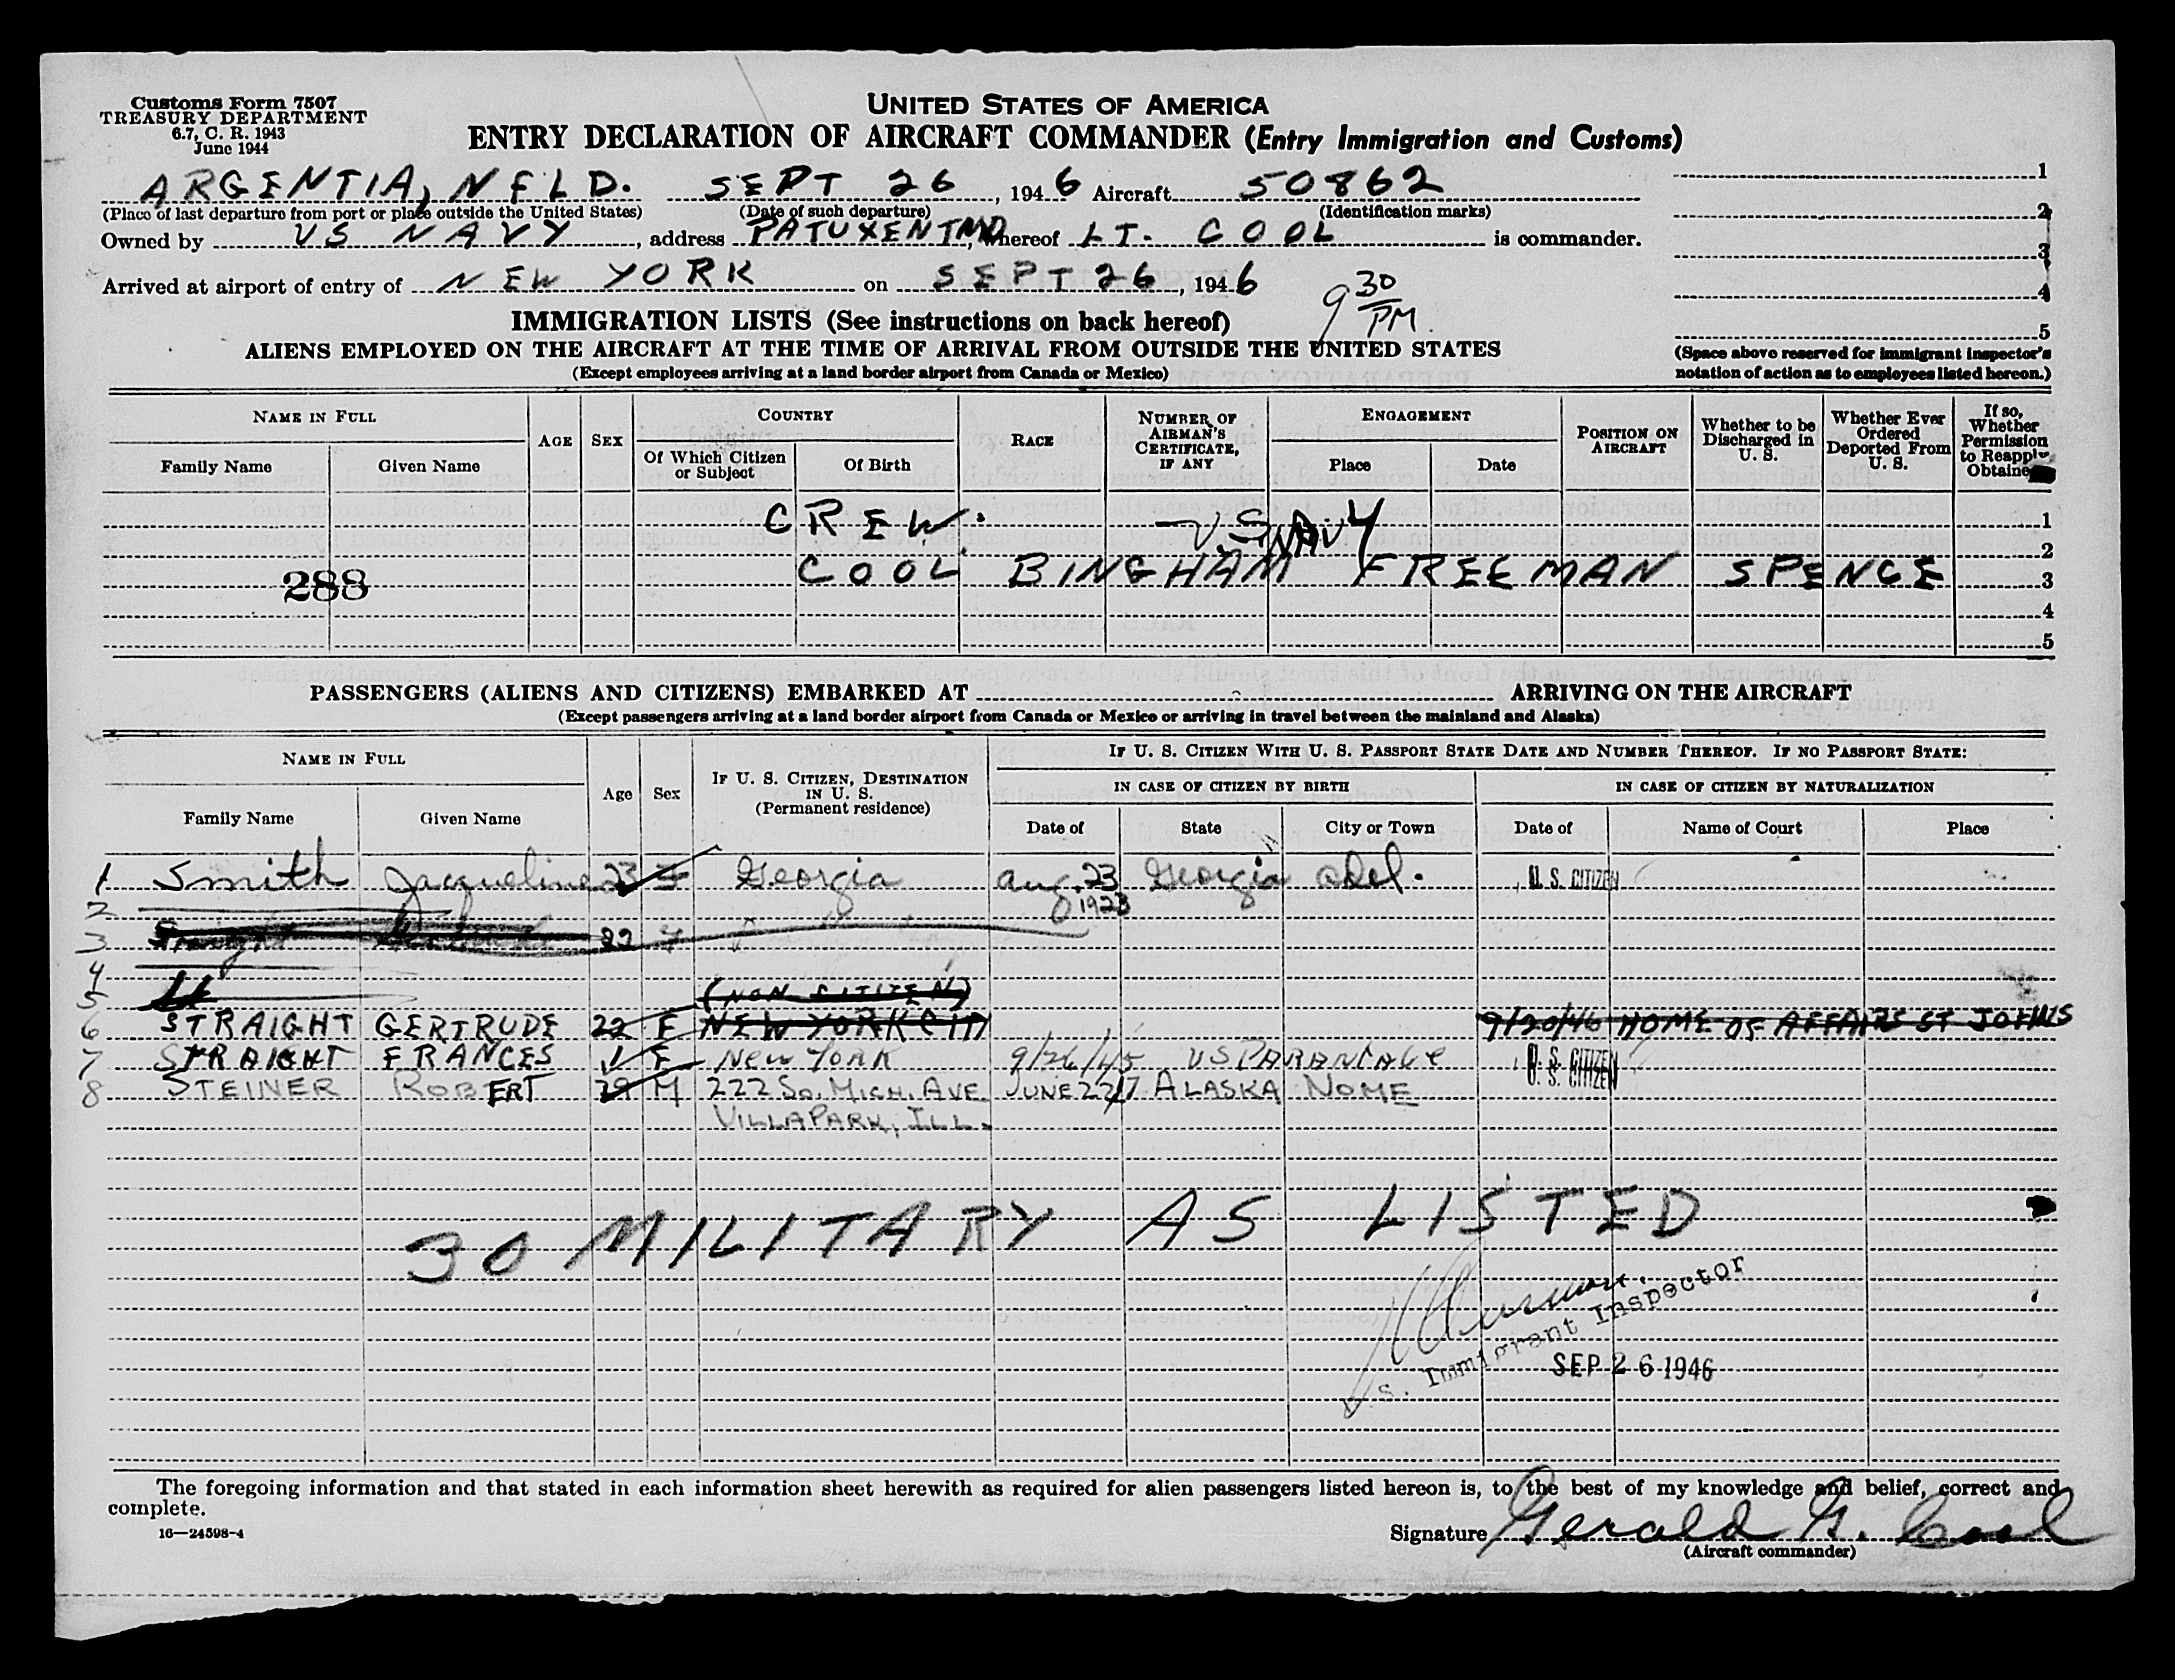 Customs Form 7507
TREASURY DEPARTMENT
6.7, C. R. 1943
June 1944
UNITED STATES OF AMERICA
ENTRY DECLARATION OF AIRCRAFT COMMANDER (Entry Immigration and Customs)
ARGENTIA, NFLD. SEPT 26, 1946 Aircraft 50862
(Place of last departure from port or place outside the United States) (Date of such departure) (Identification marks)
Owned by US NAVY, address PATUXENT MD, whereof LT. COOL is commander.
Arrived at airport of entry of NEW YORK on SEPT 26, 1946
9 30 PM.
1
2
3
4
5
(Space above reserved for immigrant inspector's
notation of action as to employees listed hereon.)
IMMIGRATION LISTS (See instructions on back hereof)
ALIENS EMPLOYED ON THE AIRCRAFT AT THE TIME OF ARRIVAL FROM OUTSIDE THE UNITED STATES
(Except employees arriving at a land border airport from Canada or Mexico)
NAME IN FULL
Family Name Given Name
AGE SEX
COUNTRY
Of Which Citizen or Subject Of Birth
RACE
NUMBER OF AIRMAN'S CERTIFICATE, IF ANY
ENGAGEMENT
Place Date
POSITION ON AIRCRAFT
Whether to be Discharged in U. S.
Whether Ever Ordered Deported From U. S.
If so, Whether Permission to Reapply Obtained
CREW. U.S. NAVY 1
2
288 COOL BINGHAM FREEMAN SPENCE 3
4
5
PASSENGERS (ALIENS AND CITIZENS) EMBARKED AT ARRIVING ON THE AIRCRAFT
(Except passengers arriving at a land border airport from Canada or Mexico or arriving in travel between the mainland and Alaska)
NAME IN FULL
Family Name Given Name
Age Sex
IF U. S. CITIZEN, DESTINATION IN U. S. (Permanent residence)
IF U. S. CITIZEN WITH U. S. PASSPORT STATE DATE AND NUMBER THEREOF. IF NO PASSPORT STATE:
IN CASE OF CITIZEN BY BIRTH
Date of State City or Town
IN CASE OF CITIZEN BY NATURALIZATION
Date of Name of Court Place
1 Smith Jacqueline 23 F Georgia Aug. 23 Georgia Adel. U. S. CITIZEN
2 1923
3 Straight 22 F
4
5 Lt (NON CITIZEN)
6 STRAIGHT GERTRUDE 22 F NEW YORK CITY 9/20/46 HOME OF AFFAIRS ST JOHNS
7 STRAIGHT FRANCES 1 F NEW YORK 9/26/45 US PARANTAGE U. S. CITIZEN
8 STEINER ROBERT 29 M 222 SO. MICH. AVE. JUNE 22/17 ALASKA NOME U. S. CITIZEN
VILLA PARK, ILL.
30 MILITARY AS LISTED
U. S. Immigrant Inspector
SEP 26 1946
The foregoing information and that stated in each information sheet herewith as required for alien passengers listed hereon is, to the best of my knowledge and belief, correct and
complete.
16—24598-4
Signature Gerald G. Cool
(Aircraft commander)